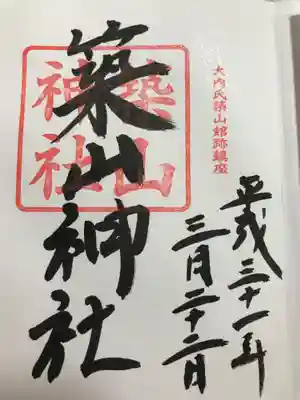 大内氏築山館跡鎮座
平成三十一年
三月二十二日
築山神社
築山
神社